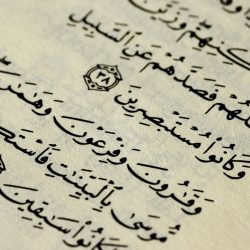 ـكِنِهِمْ وَزَيَّنَ
ـلَهُمْ فَصَدَّهُمْ عَنِ ٱلسَّبِيلِ
وَكَانُوا۟ مُسْتَبْصِرِينَ ٣٨
وَقَٰرُونَ وَفِرْعَوْنَ وَهَٰمَٰنَ
مُّوسَىٰ بِٱلْبَيِّنَٰتِ فَٱسْتَكـ
كَانُوا۟ سَٰبِقِينَ